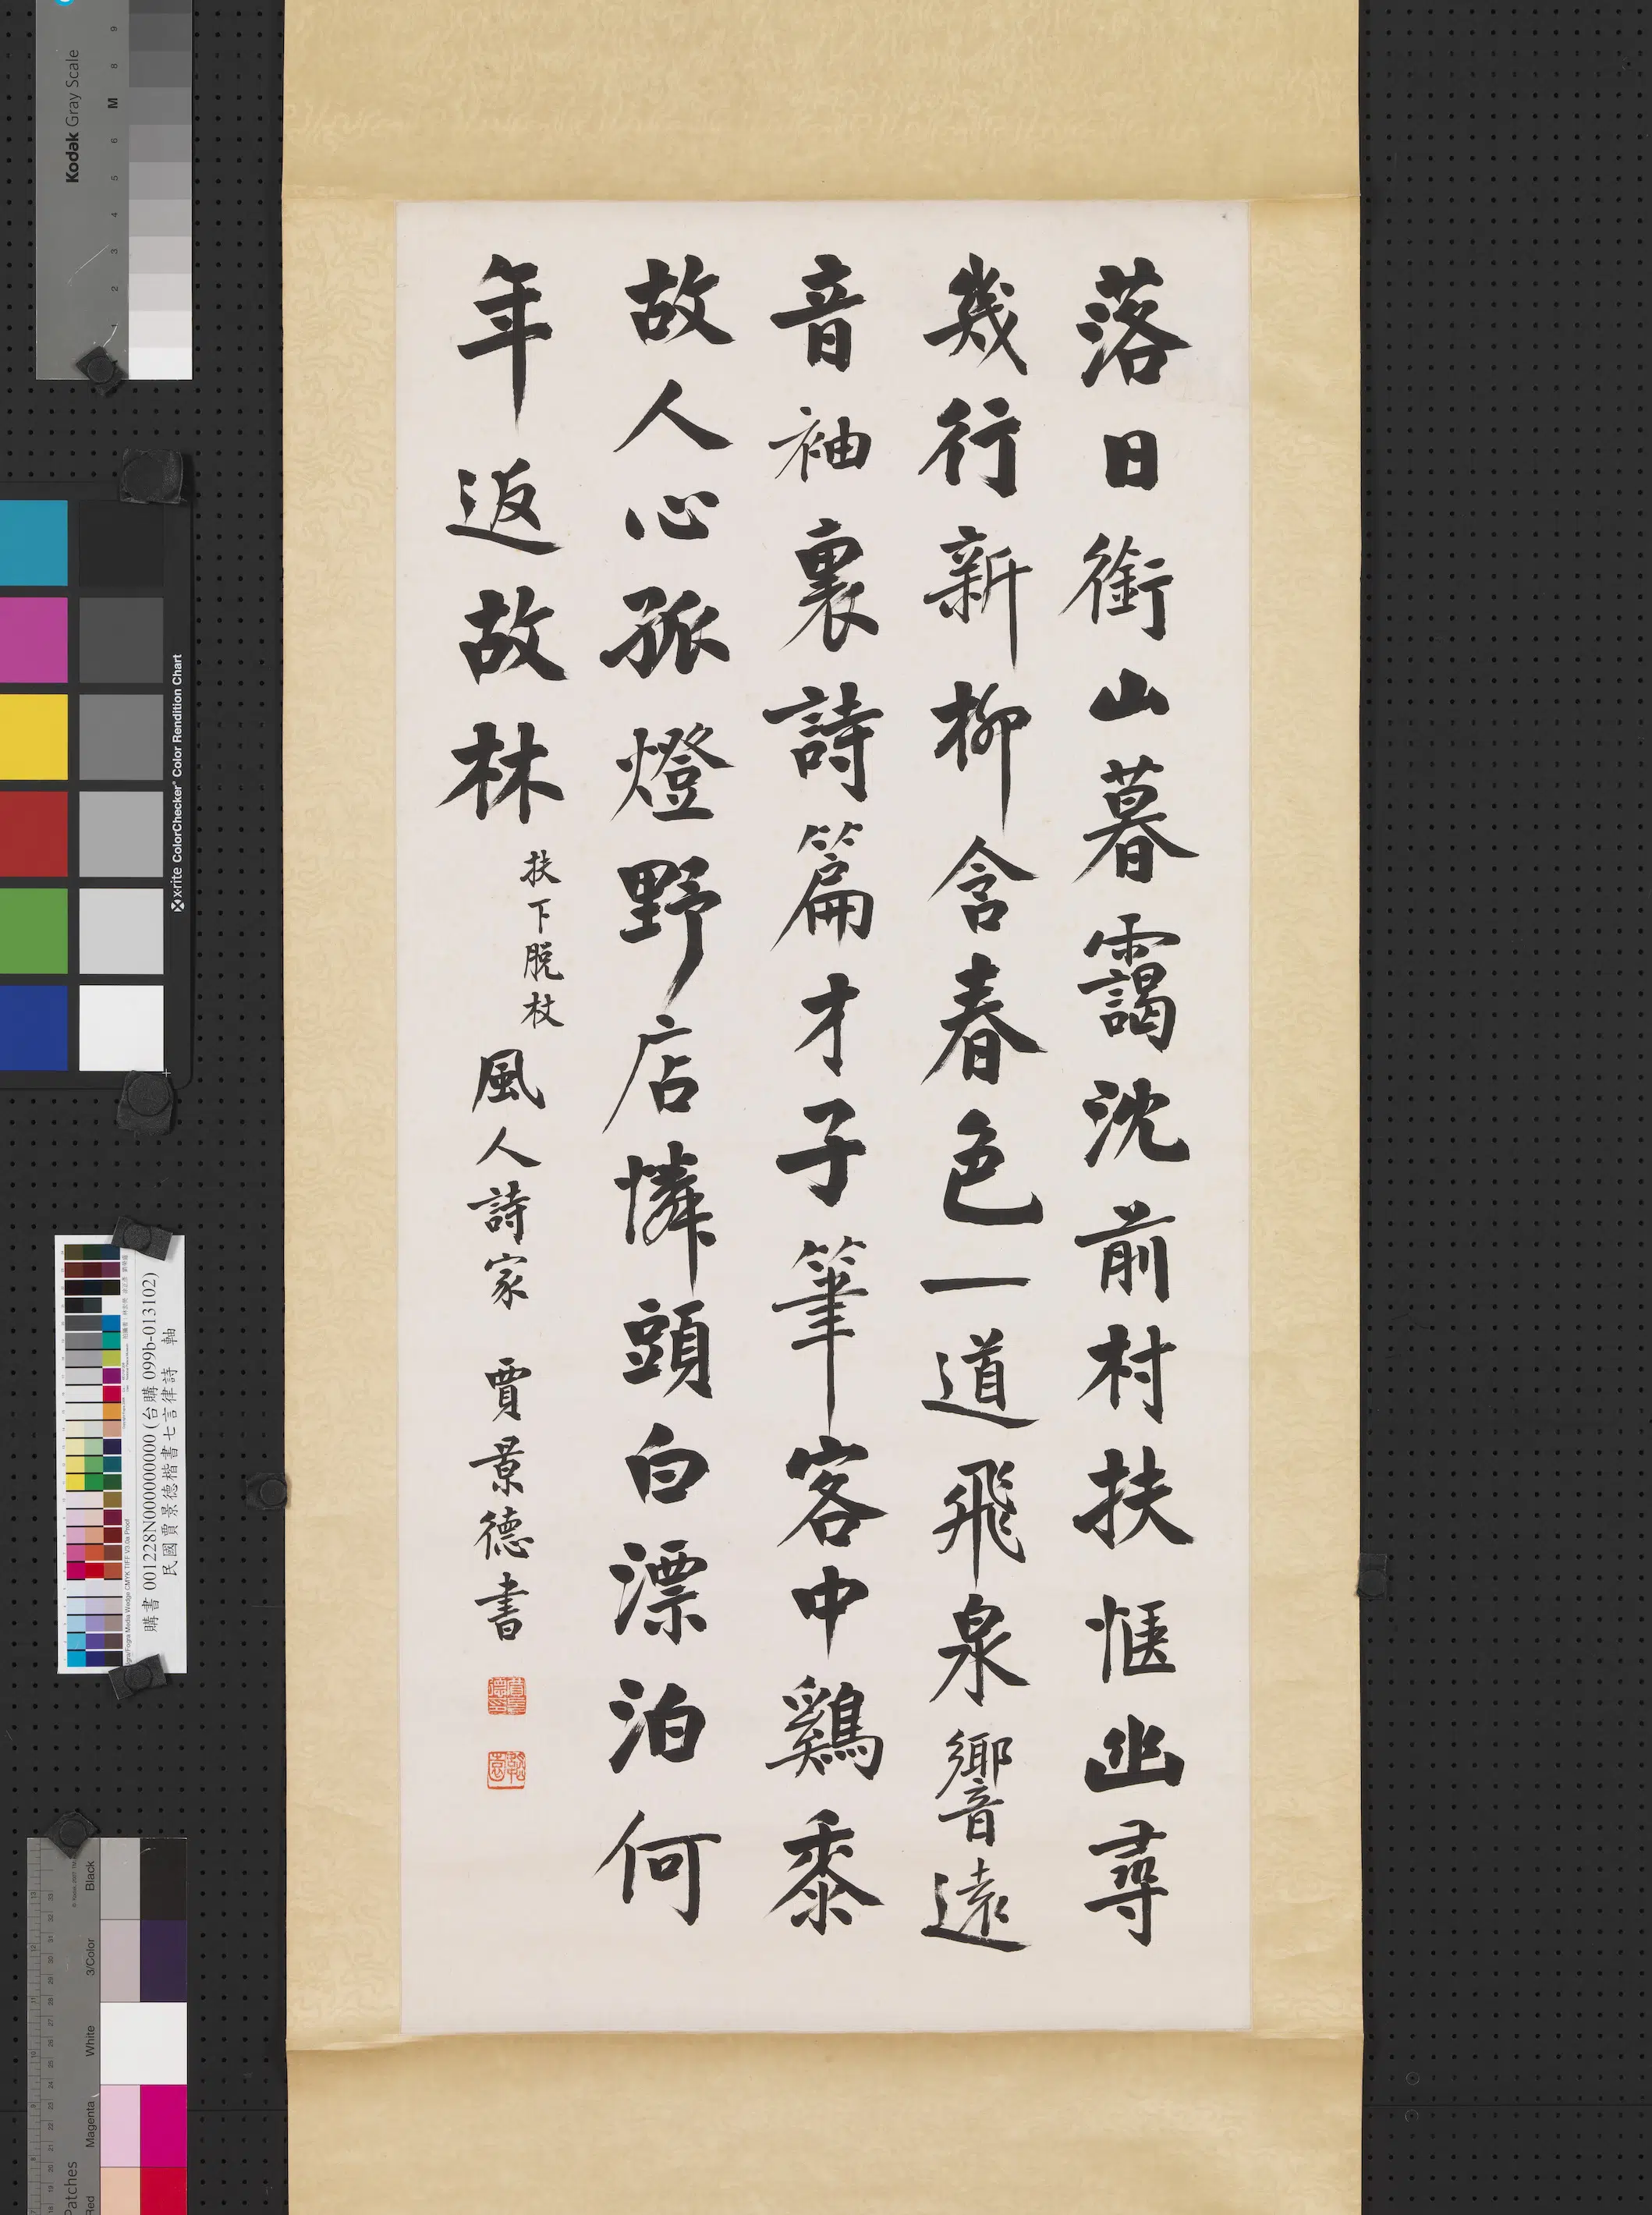 落日銜山暮靄沈前村扶愜幽尋
幾行新柳含春色一道飛泉響遠
音袖裏詩篇才子筆客中鷄黍
故人心孤燈野店憐頭白漂泊何
年返故林
扶下脫杖
風人詩家 賈景德書
Kodak Gray Scale
1 2 3 4 5 6 M 8 9
x-rite ColorChecker Color Rendition Chart
購書 001228N000000000 (台購 099b-013102)
民國賈景德楷書七言律詩 軸
Black
3/Color
White
Magenta
Red
Patches